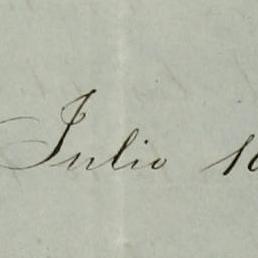 Julio 18